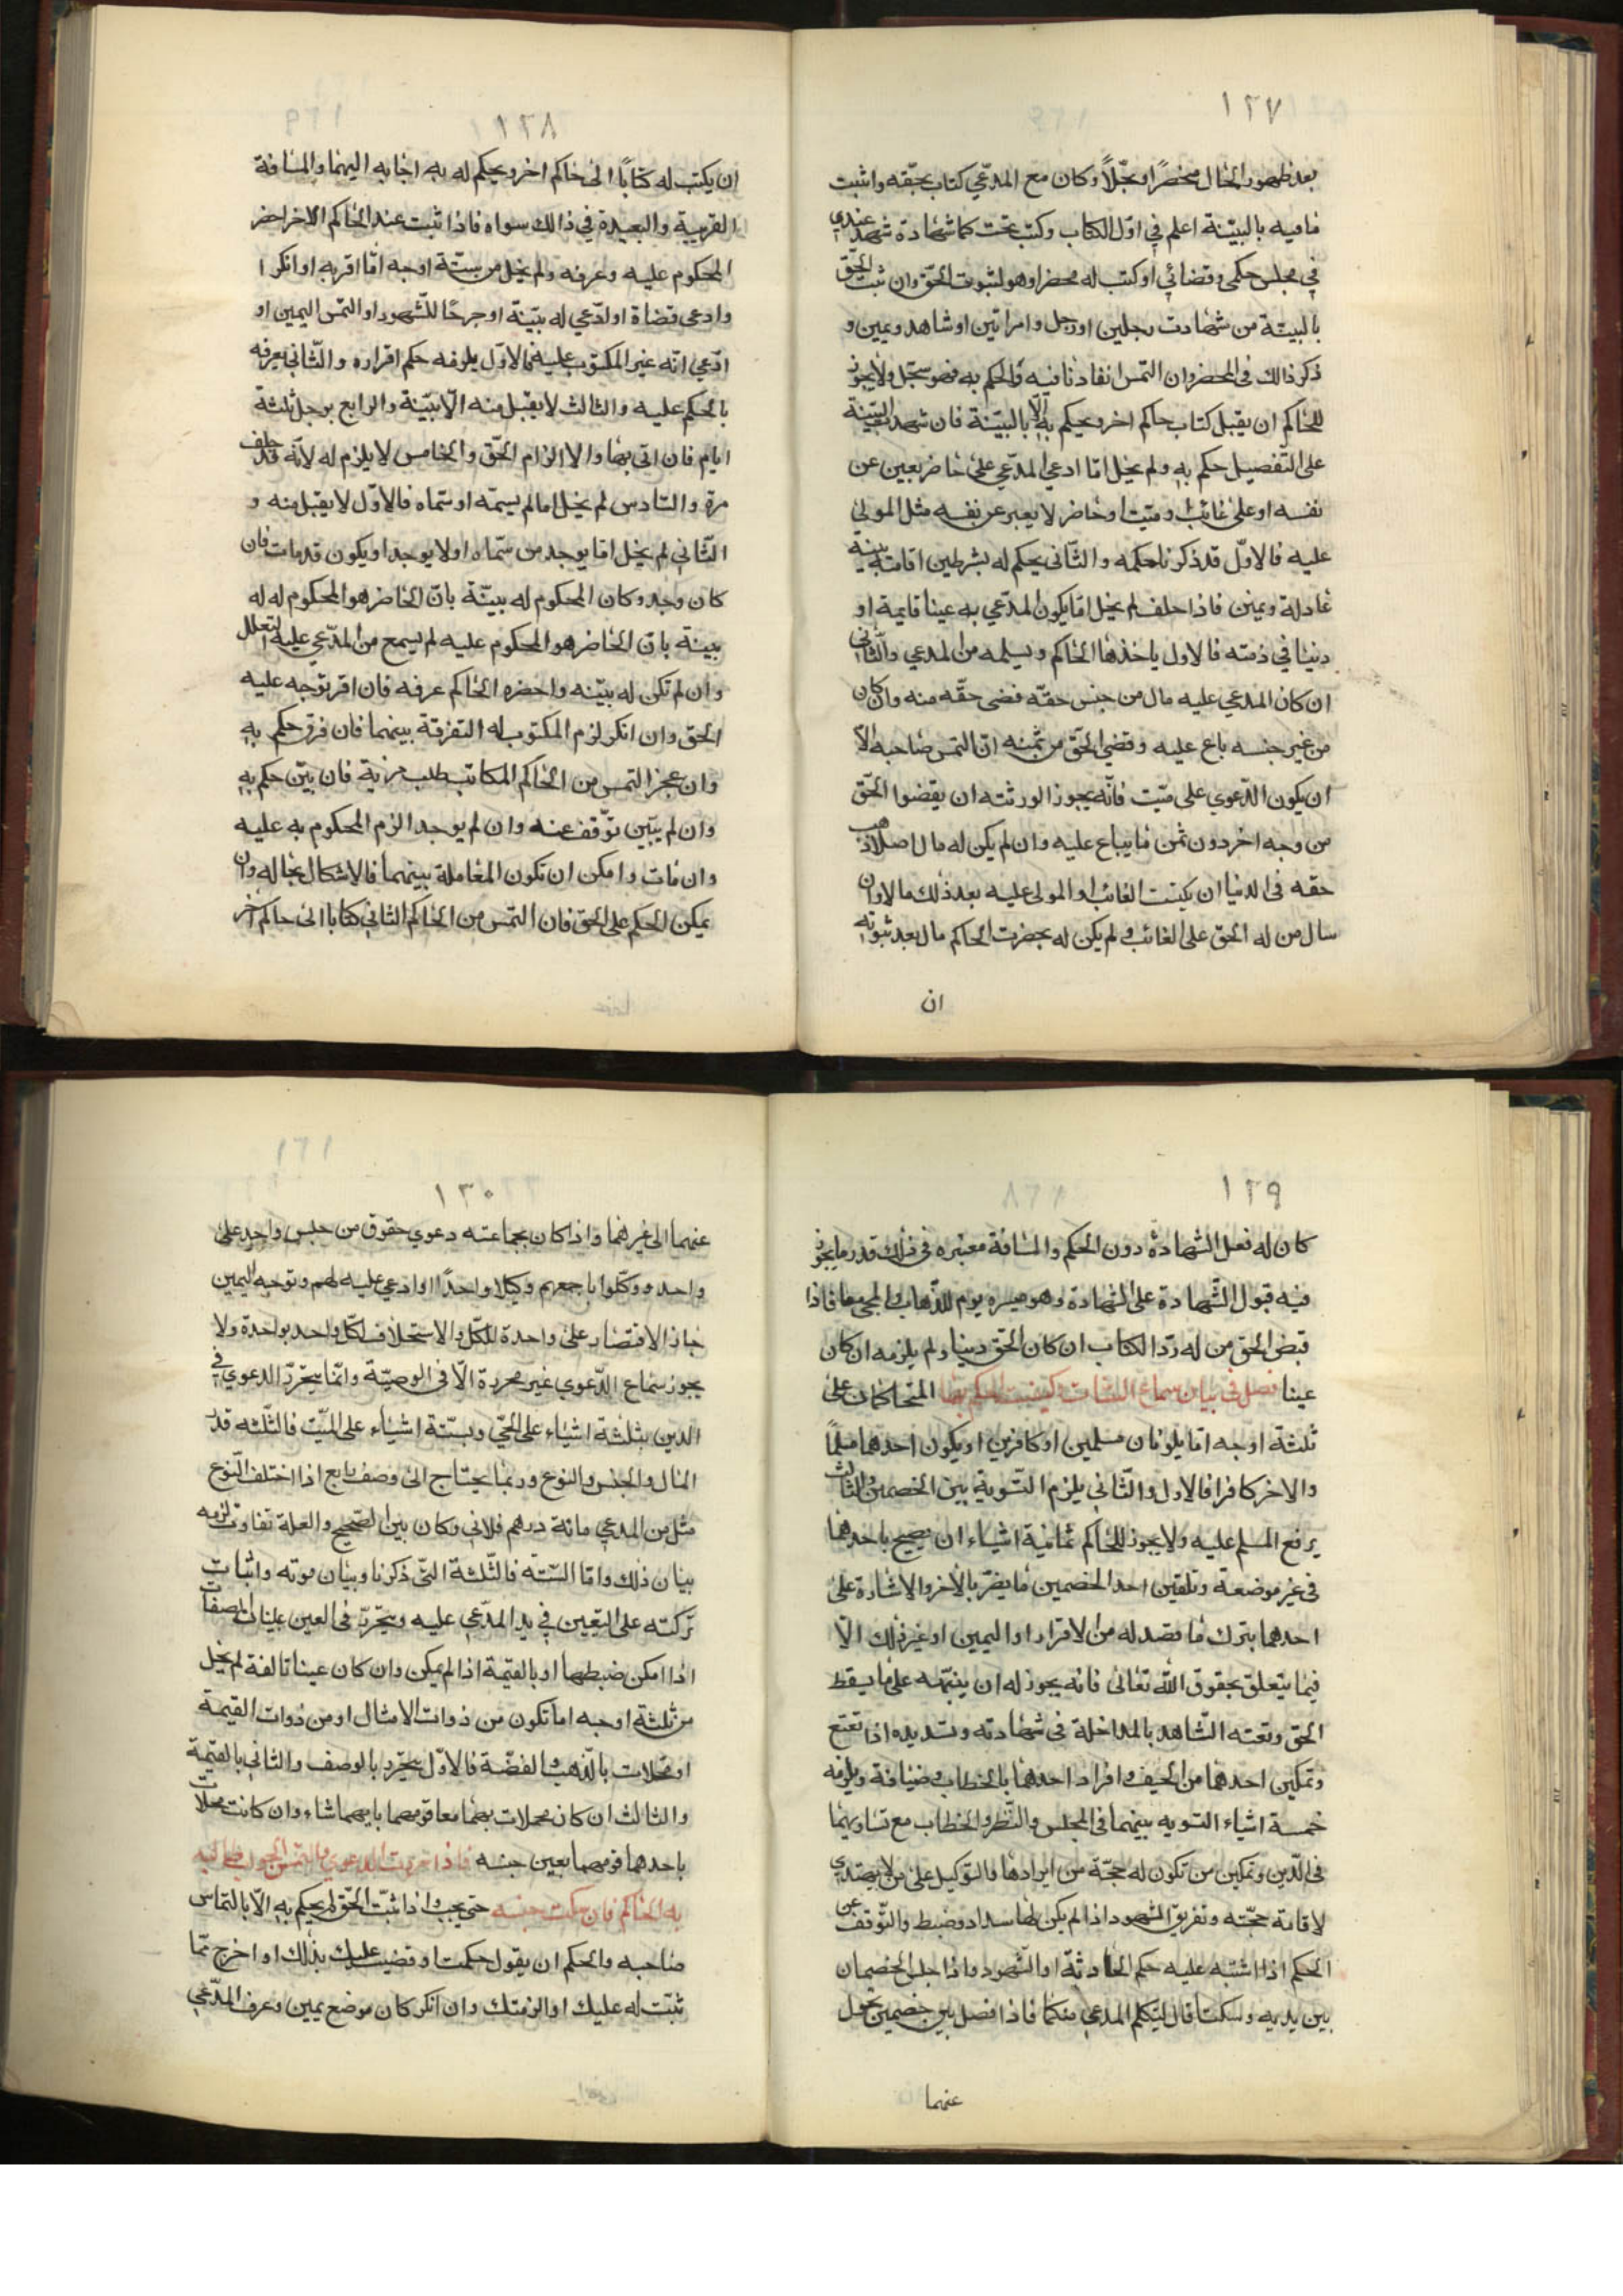 ١٢٧
بعد ظهور الحال محضرًا وسجّلاً وكان مع المدّعي كتاب بحقّه واثبت
مافيه بالبيّنة اعلم في اوّل الكتاب وكتب تحت كما شهادة شهد عندي
في مجلس حكمي وقضائي او كتب له محضرا وهو لثبوت الحقّ وان ثبت الحقّ
بالبيّنة من شهادت رجلين اورجل وامراتين او شاهد ويمين و
ذكر ذالك فى المحضر وان التمس انفاد نافيه والحكم به فهو سجّل ولا يجوز
للحاكم ان يقبل كتاب حاكم اخر ويحكم به الّا بالبيّنة فان شهد البيّنة
على التّفصيل حكم به ولم يخل امّا ادعي المدّعي على حاضر بعين عن
نفسه او على غائب وميّت او حاضر لا يعبر عن نفسه مثل المولى
عليه فالاوّل قد ذكرنا حكمه والثّاني يحكم له بشرطين اقامة بينة
عادلة ويمين فاذا حلف لم يخل امّا يكون المدّعي به عينا قايمة او
دينا في ذمته فالاول ياخذها الحاكم ويسلمه من المدعي والثّاني
ان كان المدعي عليه مال من جنس حقّه قضى حقّه منه وان كان
من غير جنسه باع عليه وقضي الحقّ من ثمنه ان التمس صاحبه الّا
ان يكون الدّعوي على ميّت فانّه يجوز الورثته ان يقضوا الحقّ
من وجه اخر دون ثمن ما يباع عليه وان لم يكن له مال اصلا ذهب
حقه فى الدنيا ان يكتب الغائب او المولى عليه بعد ذلك مالا وان
سال من له الحق على الغائب ولم يكن له بحضرت الحاكم مال بعد ثبوته
ان
١٢٨
ان يكتب له كتابًا الى حاكم اخر ويحكم له به اجابه اليهما والمسافة
القريبة والبعيدة في ذالك سواء فاذا ثبت عند الحاكم الاخر احضر
المحكوم عليه وعرفه ولم يخل من ستّة اوجه امّا اقربه او انكر ا
وادعى قضاة اوادّعي له بيّنة او جرحًا للشّهود او التمس اليمين او
ادّعي انّه غير المكتوب عليه فالاوّل يلزمه حكم اقراره والثّاني يعرفه
بالحكم عليه والثالث لا يقبل منه الّا ببيّنة والرابع يوجل ثلثة
ايام فان اتى بها والا الزام الحقّ والخامس لا يلزم له لانّه قد حلف
مرة والسّادس لم يخل امالم يسمّه اوسمّاه فالاوّل لا يقبل منه و
الثّاني لم يخل امّا يوجد من سمّاه اولا يوجد او يكون قدمات فان
كان وجد وكان المحكوم له بيّنة بانّ الحاضر هو المحكوم له له
بينة بانّ الحاضر هو المحكوم عليه لم يسمع من المدّعي عليه التعلل
وان لم تكن له بيّنه واحضره الحاكم عرفه فان اقر توجه عليه
الحق وان انكر لزم المكتوب له التفرقة بينهما فان فرق حكم به
وان عجز التمس من الحاكم المكاتب طلب مزية فان بيّن حكم به
وان لم يبيّن توّقف عنه وان لم يوجد الزم المحكوم به عليه
وان مات وامكن ان تكون المعاملة بينهما فالاشكال بحاله وان
يمكن الحكم على الحق فان التمس من الحاكم الثاني كتابا الى حاكم اخر
١٢٩
كان له فعل الشّهادة دون الحكم والمسافة معتبره في ذلك قدر ما يجوز
فيه قبول الشّهادة على الشهادة وهو مسيره يوم للذّهاب والمجئ معا فاذا
قبض الحق من له ردّ الكتاب ان كان الحق دينا ولم يلزمه ان كان
عينا فصل في بيان سماع البيّنات وكيفيت الحكم بها المتحاكمان على
ثلثة اوجه امّا يكونان مسلمين اوكافرين اويكون احدهما مسلمًا
والاخر كافرا فالاول والثّاني يلزم التّسوية بين الخصمين والثالث
يرفع المسلم عليه ولا يجوز للحاكم ثمانية اشياء ان يصيح باحدهما
في غير موضعة وتلقين احد الخصمين ما يضرّ بالاخر والاشارة على
احدهما بترك ما قصد له من الاقرار او اليمين او غير ذلك الّا
فيما يتعلق بحقوق اللّه تعالى فانه يجوز له ان ينبّهه على ما يسقط
الحق وتعته الشّاهد بالمداخلة في شهادته وتسديده اذا تعتع
وتمكين احدهما من الحيف وافراد احدهما بالخطاب وضيافة ويلزمه
خمسة اشياء التسويه بينهما في المجلس والنّظر والخطاب مع تساويهما
فى الدّين وتمكين من تكون له حجّة من ايرادها والتوكيل على من لا يهتدي
لاقامة حجّته وتفريق الشهود اذا لم يكن لها سداد وضبط والتّوقف عن
الحكم اذا اشتبه عليه حكم الحادثة او الشّهود واذا جلس الخصمان
بين يديه وسكتا قال ليتكلم المدعي منكما فاذا فصل بين خصمين تحول
عنهما
١٣٠
عنهما الى غيرهما واذا كان بجماعته دعوي حقوق من جنس واحد على
واحد ووكلوا باجمعهم وكيلا واحدًا اوادعي عليه لهم وتوجه اليمين
جاز الاقتصار على واحدة للكلّ والاستحلاف لكلّ واحد بواحدة ولا
يجوز سماع الدّعوي غير محررة الّا فى الوصيّة وانّما يتحرّر الدعوي في
الدين بثلثة اشياء على الحّي وبستّة اشياء على الميّت فالثّلثه قدر
المال والجنس والنوع وربما يحتاج الى وصف رابع اذا اختلف النّوع
مثل من المدعي مائة درهم فلاني وكان بين الصّحيح والعلة تفاوت لزمه
بيان ذلك وامّا السّته فالثّلثة التّي ذكرنا وبيان موته واثبات
تركته على التّعيين في يد المدّعي عليه ويتحرّر فى العين ببيان الصفات
اذا امكن ضبطها او بالقيمة اذا لم يمكن وان كان عينا تالفة لم يخل
من ثلثة اوجه اما تكون من ذوات الامثال او من ذوات القيمة
او محلات بالذّهب والفضّة فالاوّل يتحرّر بالوصف والثاني بالقيّمة
والثالث ان كان محلات بهما معا قومهما بايهما شاء وان كانت محلات
باحدهما قومهما بعين جنسه فاذا تحررت الدعوي والتمس الجواب طالبه
به الحاكم فان سكت حبسه حتى يجب واذا ثبّت الحّق لم يحكم به الّا بالتماس
صاحبه والحكم ان يقول حكمت او قضيت عليك بذلك او اخرج ممّا
ثبّت له عليك او الزمتك وان انكر كان موضع يمين وعرف المدّعي